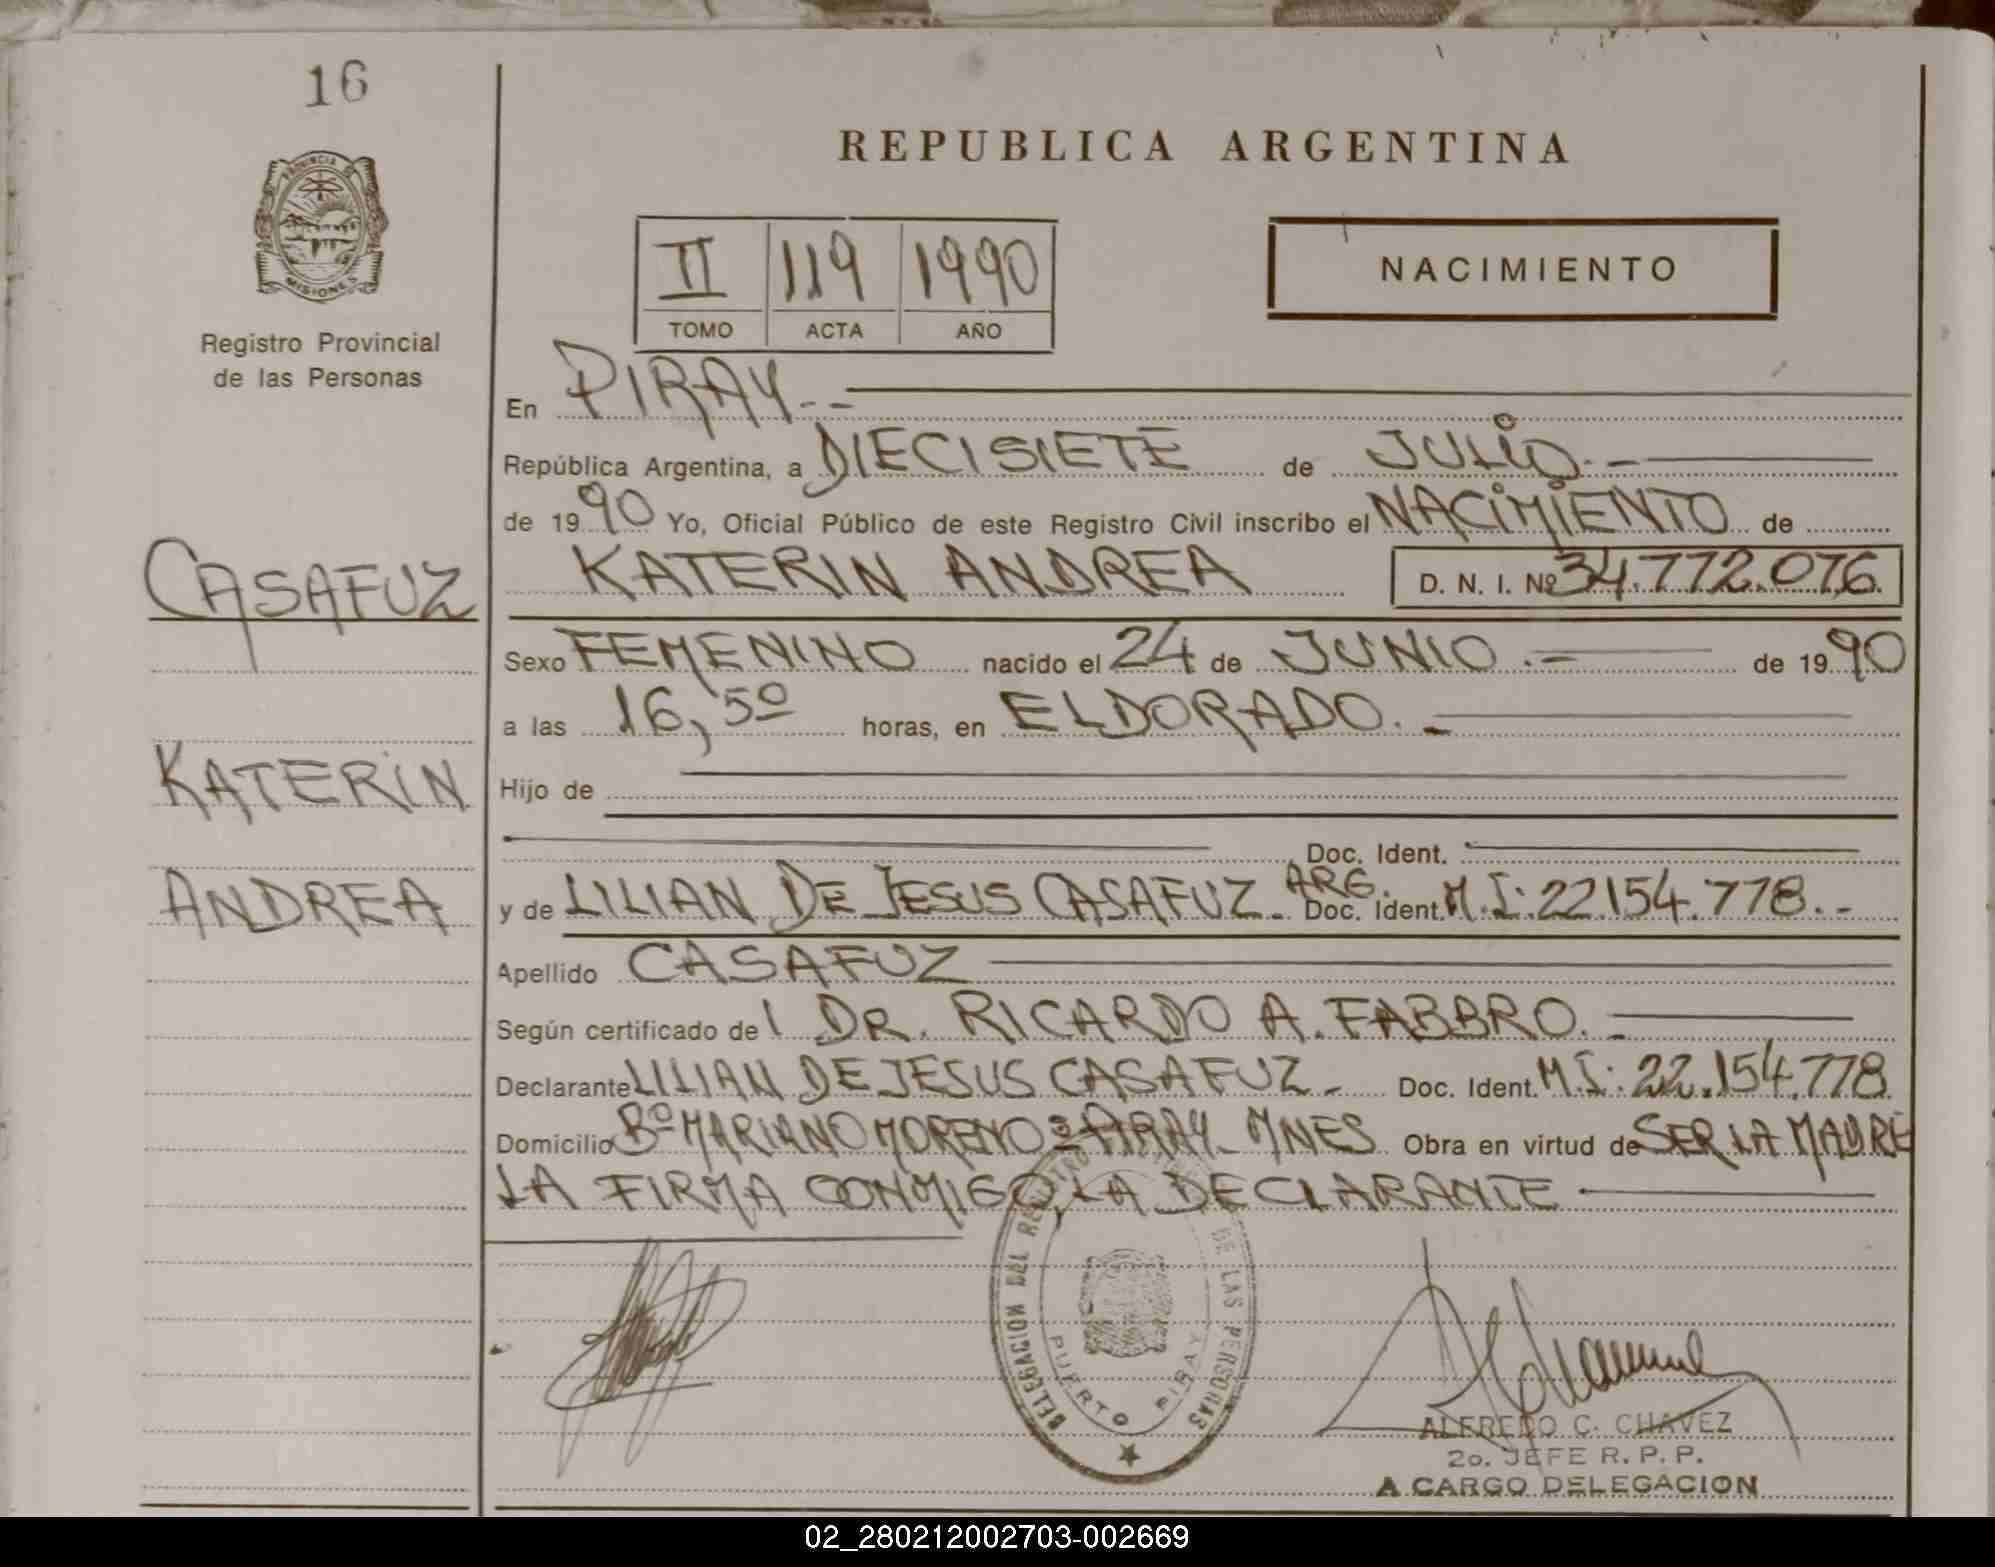 16
PROVINCIA DE
MISIONES
Registro Provincial
de las Personas
CASAFUZ
KATERIN
ANDREA
REPUBLICA ARGENTINA
II 119 1990
TOMO ACTA AÑO
NACIMIENTO
En PIRAY.--
República Argentina, a DIECISIETE de JULIO.-
de 1990 Yo, Oficial Público de este Registro Civil inscribo el NACIMIENTO de
KATERIN ANDREA D. N. I. Nº 34.772.076.
Sexo FEMENINO nacido el 24 de JUNIO.- de 1990
a las 16,50 horas, en ELDORADO.-
Hijo de
Doc. Ident.
y de LILIAN DE JESUS CASAFUZ- ARG. Doc. Ident. M.I: 22.154.778.-
Apellido CASAFUZ
Según certificado del DR. RICARDO A. FABBRO.-
Declarante LILIAN DE JESUS CASAFUZ- Doc. Ident. M.I: 22.154.778
Domicilio Bº MARIANO MORENO PIRAY- MNES Obra en virtud de SER LA MADRE
LA FIRMA CONMIGO, LA DECLARANTE
DELEGACION DEL REGISTRO DE LAS PERSONAS
PUERTO PIRAY
ALFREDO C. CHAVEZ
2o. JEFE R. P. P.
A CARGO DELEGACION
02_280212002703-002669